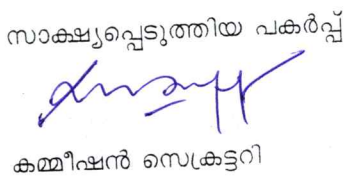 സാക്ഷ്യപ്പെടുത്തിയ പകർപ്പ്
കമ്മീഷൻ സെക്രട്ടറി